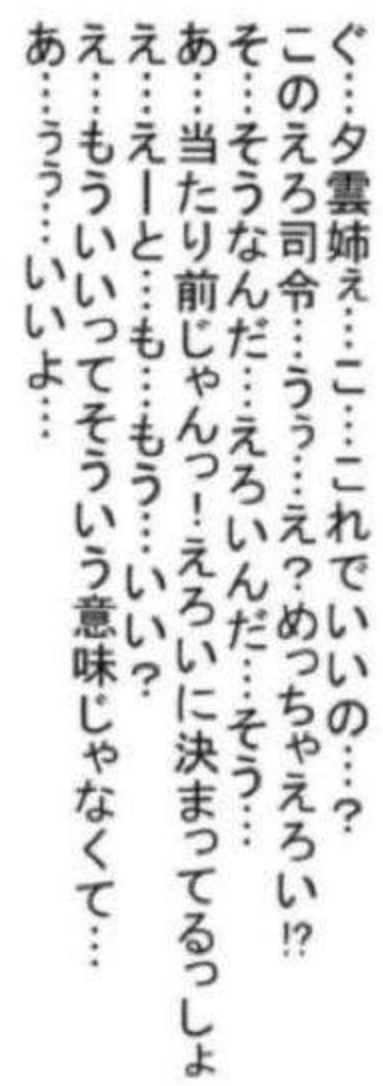 ぐ…夕雲姉ぇ…こ…これでいいの…？
このえろ司令…うぅ…え？めっちゃえろい！？
そ…そうなんだ…えろいんだ…そう…
あ…当たり前じゃんっ！えろいに決まってるっしょ
え…えーと…も…もう…いい？
え…もういいってそういう意味じゃなくて…
あ…うぅ…いいよ…